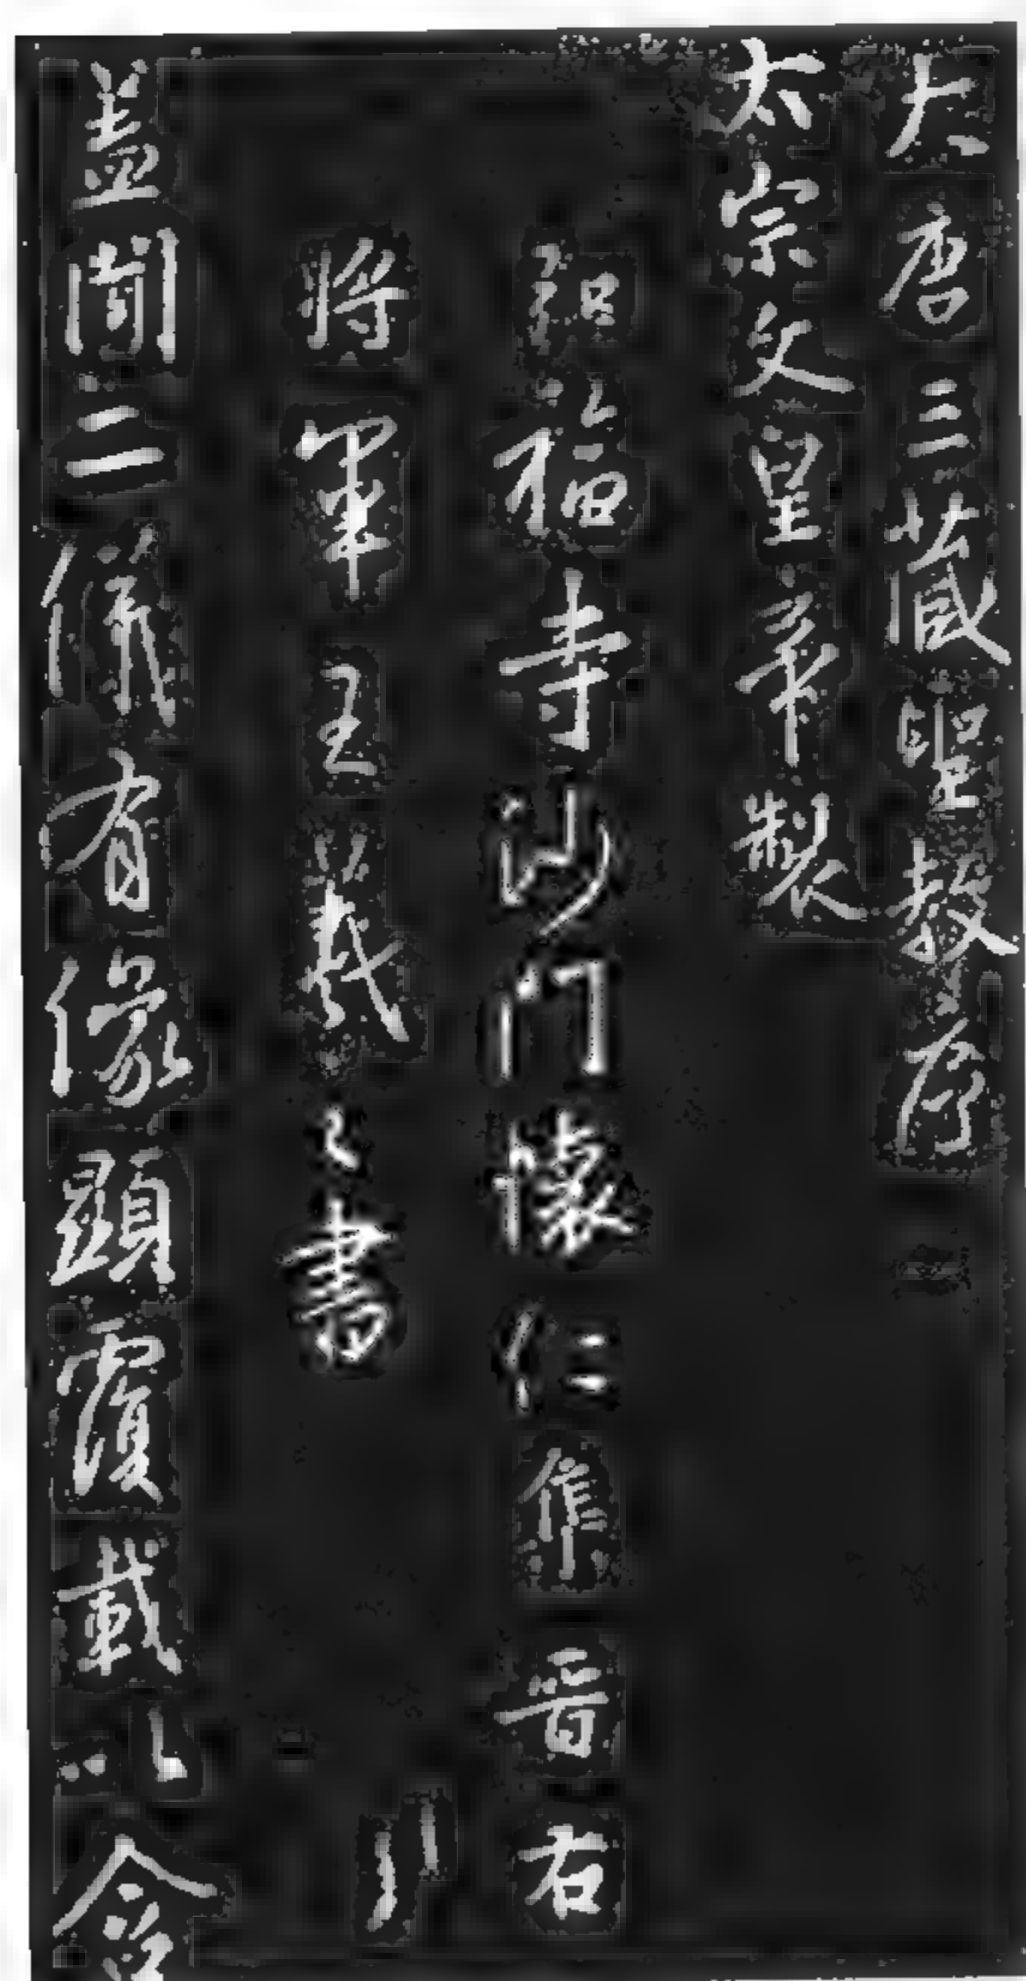 大唐三藏聖教序
太宗文皇帝製
弘福寺沙門懷仁集晉右
將軍王羲之書
盖聞二儀有像顯覆載以含